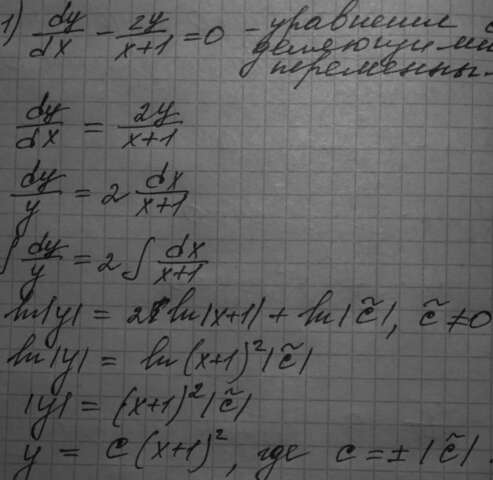 1) dy/dx - 2y/x+1 = 0 - уравнение с
деляющими
переменны
dy/dx = 2y/x+1
dy/y = 2 dx/x+1
∫ dy/y = 2 ∫ dx/x+1
ln|y| = 2 ln|x+1| + ln|c̃|, c̃ ≠ 0
ln|y| = ln(x+1)²|c̃|
|y| = (x+1)²|c̃|
y = c(x+1)², где c = ±|c̃|.